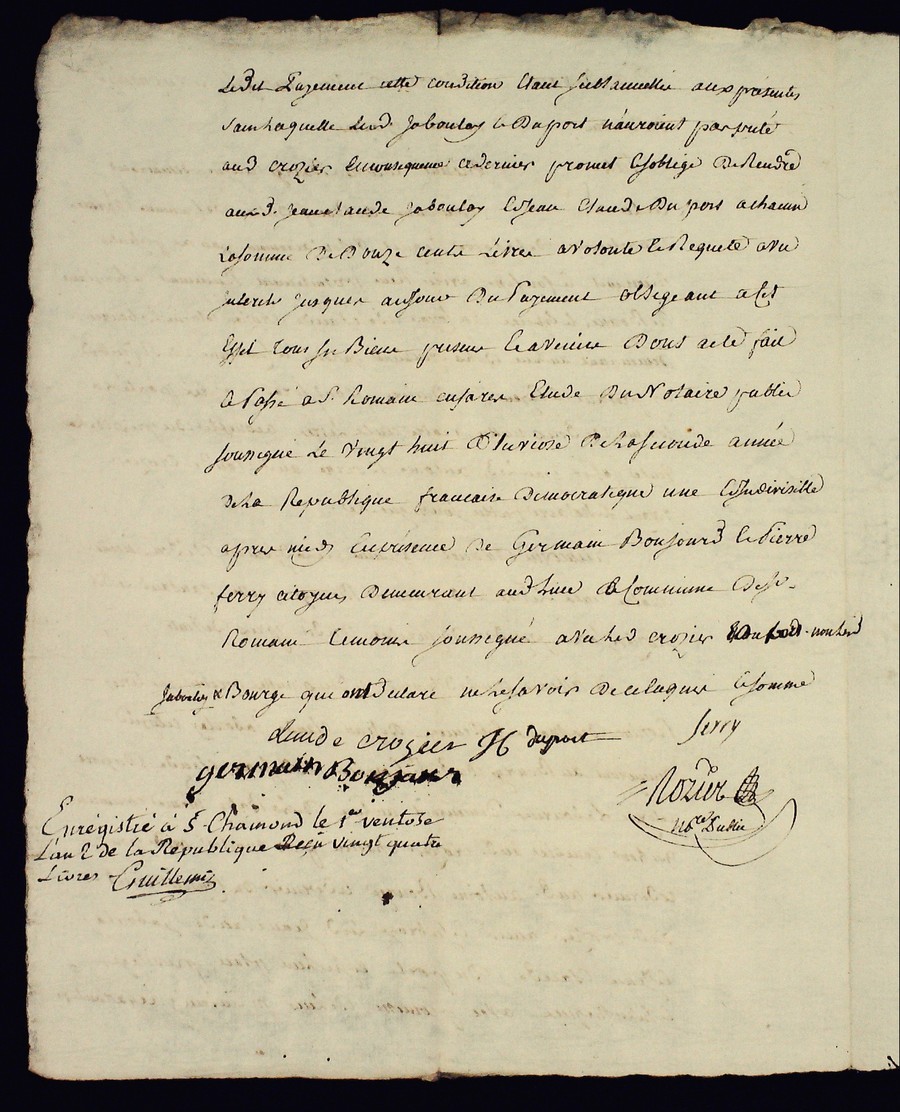 Ledit Payement cette condition Etant substancielle aux présentes
sans laquelle Lesd. Jaboulay & Duport n'auroient pas prèté
aud crozier En consequence ce dernier promet & soblige De Rendre
auxd. Jean claude Jaboulay & Jean Claude Duport a chacun
La somme De Douze cents Livres a volonté & Requete avec
interets jusques au jour Du Payement obligeant a Cet
Effet tous ses Biens presens & avenirs Dont acte fait
& Passé a St. Romain en jarez Etude Du Notaire public
soussigné Le vingt huit Pluviose De la seconde année
De La Republique francaise Democratique une & Indivisible
apres midy En présence de Germain Bonjour & Pierre
ferry citoyens Demeurant aud lieu & Commune De St.
Romain temoins soussigné avec led crozier & Duport non led
Jaboulay & Bourge qui ont declare ne le savoir De ce enquis & somme
claude crozier JC duport ferry
germain Bonjour
Rozier
no.re Public
Enregistré à St Chamond le 1er ventose
L'an 2 de la Republique Reçu vingt quatre
Livres Guillemin